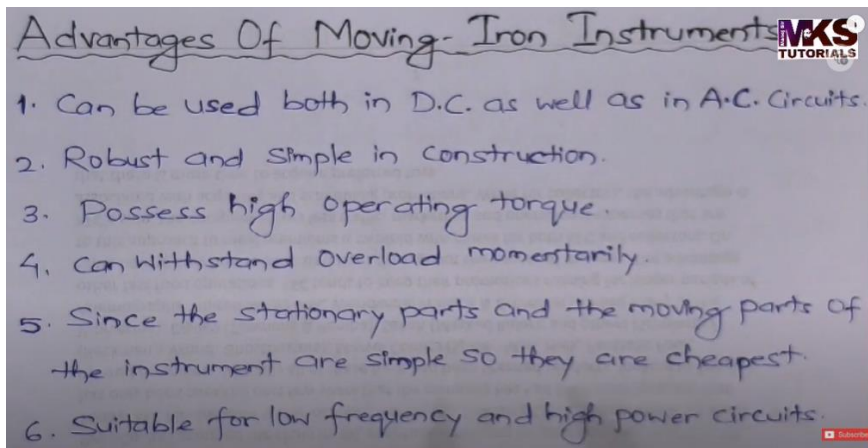 Advantages Of Moving-Iron Instruments
MKS
TUTORIALS
1. Can be used both in D.C. as well as in A.C. Circuits.
2. Robust and simple in construction.
3. Possess high operating torque
4. Can withstand overload momentarily.
5. Since the stationary parts and the moving parts of
the instrument are simple so they are cheapest.
6. Suitable for low frequency and high power circuits.
Subscribe